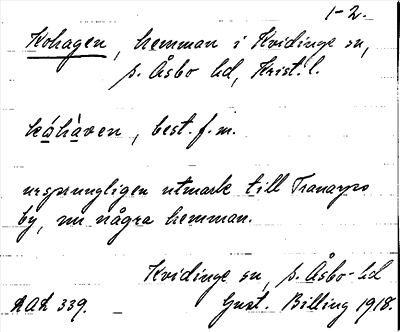 1-2.
Kohagen, hemman i Kvidinge sn,
s. Åsbo hd, Krist. l.
kåhàven, best. f. m.
ursprungligen utmark till Tranarps
by, nu några hemman.
Kvidinge sn, s. Åsbo hd
AAL 339. Gust. Billing 1918.